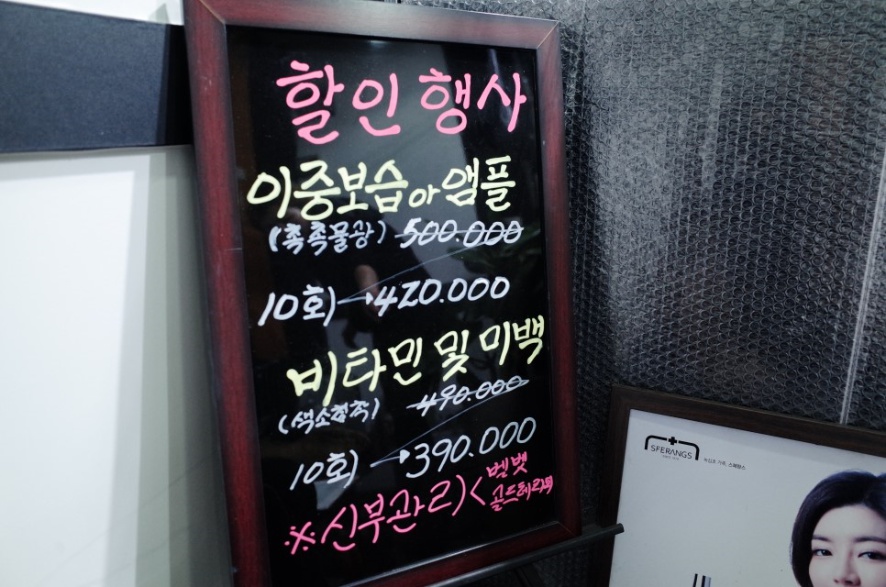 할인 행사
이중보습아 앰플
(촉촉물광) 500.000
10회)→420.000
비타민 및 미백
(색소침착) 490.000
10회) →390.000
※신부관리)< 벨벳
골드테라피
SFERANGS